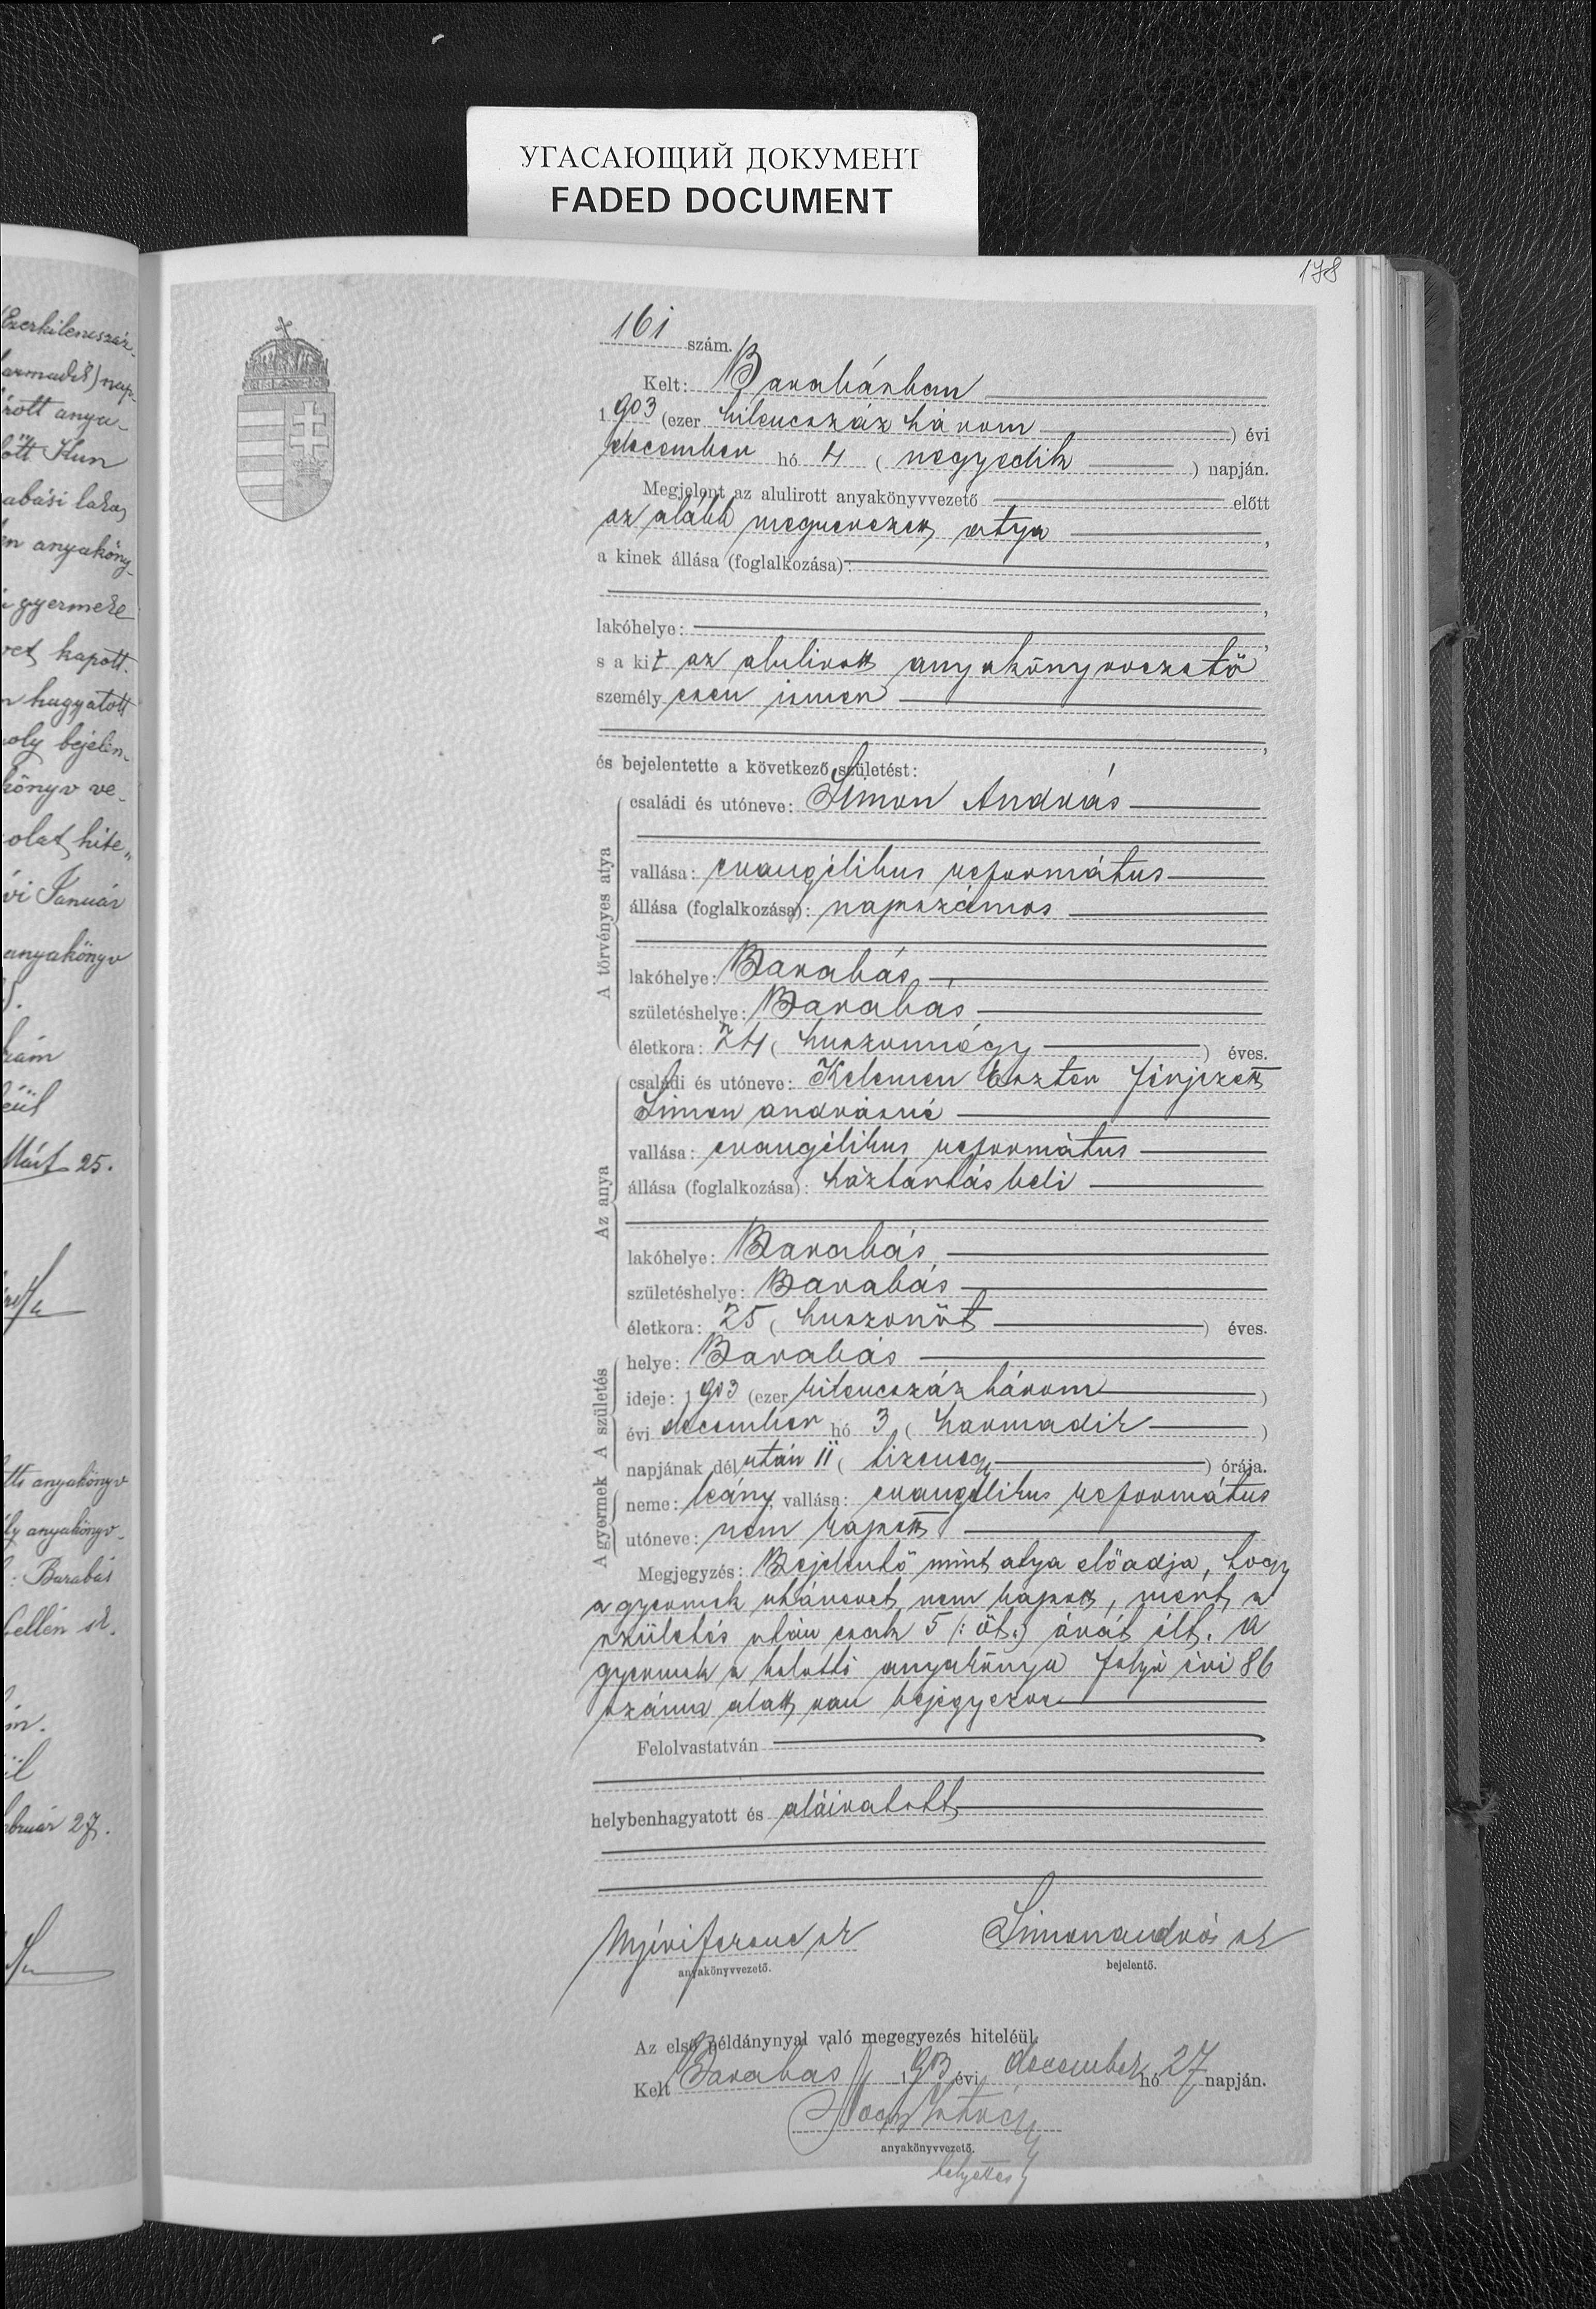 УГАСАЮЩИЙ ДОКУМЕНТ
FADED DOCUMENT
178
Ezerkilencszáz
harmadik) nap
rott anyu-
ött Kun
abási lakos
en anyaköny-
i gyermeke
vet kapott.
n hagyatott
oly bejelen-
könyv ve-
olat hite„
évi Január
anyakönyv
Márt 25.
tti anyakönyv
ly anyakönyv-
: Barabás
ellén sk.
bruár 27.
161 szám.
Kelt: Barabásban
1903 (ezer kilenczáz három ) évi
december hó 4 ( negyedik ) napján.
Megjelent az alulirott anyakönyvvezető előtt
az alább megnevezett atya ,
a kinek állása (foglalkozása):
,
lakóhelye: ,
s a kit az alulirott anyakönyvvezető
személyesen ismer
,
és bejelentette a következő születést:
A törvényes atya
családi és utóneve: Simon András
vallása: evangélikus református
állása (foglalkozása): napszámos
lakóhelye: Barabás
születéshelye: Barabás
életkora: 24 ( huszonnégy ) éves.
Az anya
családi és utóneve: Kelemen Eszter férjezett
Simon andrásné
vallása: evangélikus református
állása (foglalkozása): háztartásbeli
lakóhelye: Barabás
születéshelye: Barabás
életkora: 25 ( huszonöt ) éves.
A születés
helye: Barabás
ideje: 1903 (ezer kilenczáz három )
évi december hó 3 ( harmadik )
napjának dél után 11 ( tizenegy ) órája.
A gyermek
neme: leány, vallása: evangélikus református
utóneve: nem kapott
Megjegyzés: Bejelentő mint atya előadja, hogy
a gyermek utónevet nem kapott, mert a
születés után csak 5 (: öt :) órát élt. A
gyermek a halotti anyakönyv folyó évi 86
száma alatt van bejegyezve
Felolvastatván
helybenhagyatott és aláiratott
Nyíri ferenc sk Simon andrás sk
anyakönyvvezető. bejelentő.
Az első példánynyal való megegyezés hiteléül.
Kelt Barabás 1903 évi december hó 27 napján.
anyakönyvvezető.
helyettes